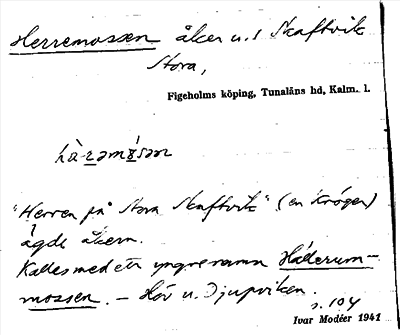 Herremossen åker u. St Skaftvik
Stora,
Figeholms köping, Tunaläns hd, Kalm. l.
hä̀rəmɷ́sən
"Herren på Stora Skaftvik" (en Kröger)
ägde åkern.
Kallas med ett yngre namn Hällerum-
mossen. – Hör u. Djupviken.
s. 104
Ivar Modéer 1941